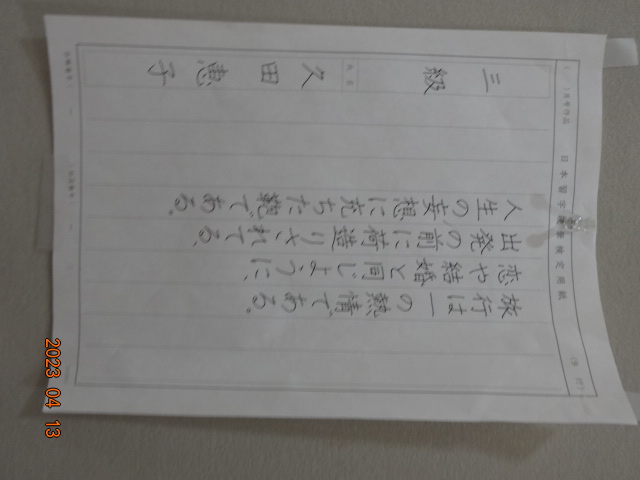 旅行は一の熱情である。
恋や結婚と同じように、
出発の前に荷造りされてる、
人生の妄想に充ちた鞄である。
三級
氏名
久田恵子
日本習字
検定用紙
2023 04 13